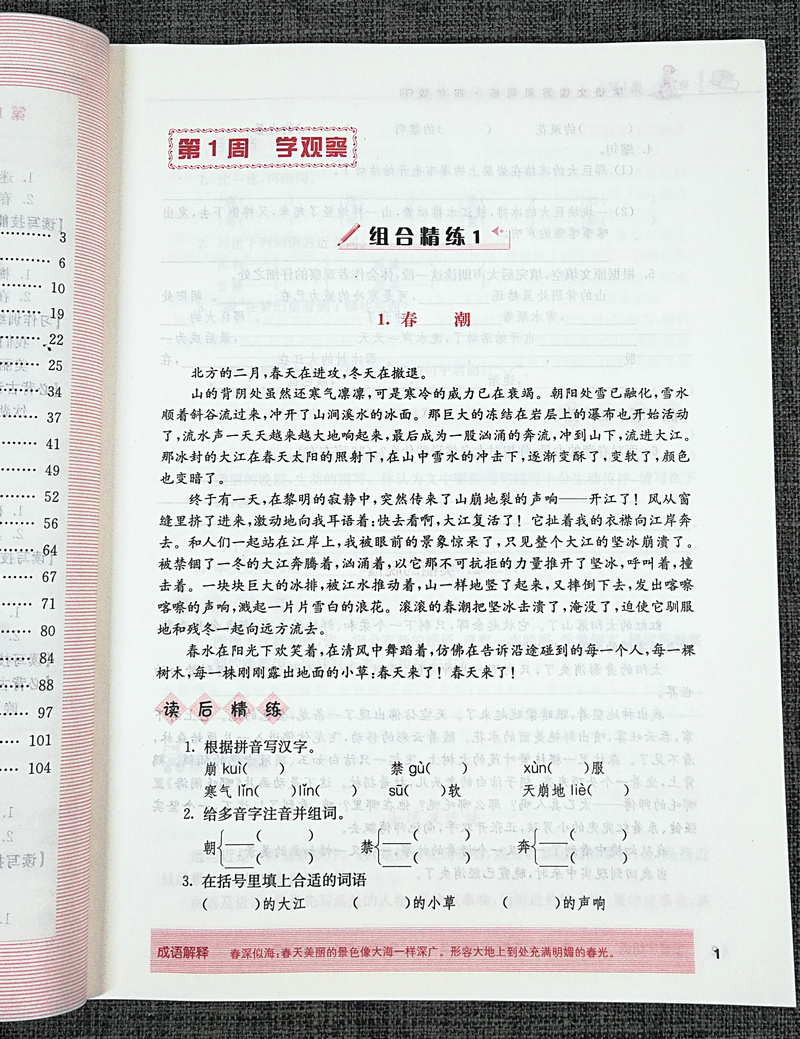 3
6
10
19
22
25
34
37
41
49
52
56
64
67
71
80
84
88
97
101
104
第1周 学观察
组合精练1
1. 春 潮
北方的二月,春天在进攻,冬天在撤退。
山的背阴处虽然还寒气凛凛,可是寒冷的威力已在衰竭。朝阳处雪已融化,雪水
顺着斜谷流过来,冲开了山涧溪水的冰面。那巨大的冻结在岩层上的瀑布也开始活动
了,流水声一天天越来越大地响起来,最后成为一股汹涌的奔流,冲到山下,流进大江。
那冰封的大江在春天太阳的照射下,在山中雪水的冲击下,逐渐变酥了,变软了,颜色
也变暗了。
终于有一天,在黎明的寂静中,突然传来了山崩地裂的声响——开江了!风从窗
缝里挤了进来,激动地向我耳语着:快去看啊,大江复活了!它扯着我的衣襟向江岸奔
去。和人们一起站在江岸上,我被眼前的景象惊呆了,只见整个大江的坚冰崩溃了。
被禁锢了一冬的大江奔腾着,汹涌着,以它那不可抗拒的力量推开了坚冰,呼叫着,撞
击着。一块块巨大的冰排,被江水推动着,山一样地竖了起来,又摔倒下去,发出喀嚓
喀嚓的声响,溅起一片片雪白的浪花。滚滚的春潮把坚冰击溃了,淹没了,迫使它驯服
地和残冬一起向远方流去。
春水在阳光下欢笑着,在清风中舞蹈着,仿佛在告诉沿途碰到的每一个人,每一棵
树木,每一株刚刚露出地面的小草:春天来了!春天来了!
读后精练
1. 根据拼音写汉字。
崩 kuì( ) 禁 gù( ) xùn( )服
寒气 lǐn( )lǐn( ) sū( )软 天崩地 liè( )
2. 给多音字注音并组词。
朝 ( ) 禁 ( ) 奔 ( )
( ) ( ) ( )
3. 在括号里填上合适的词语
( )的大江 ( )的小草 ( )的声响
成语解释 春深似海:春天美丽的景色像大海一样深广。形容大地上到处充满明媚的春光。
1